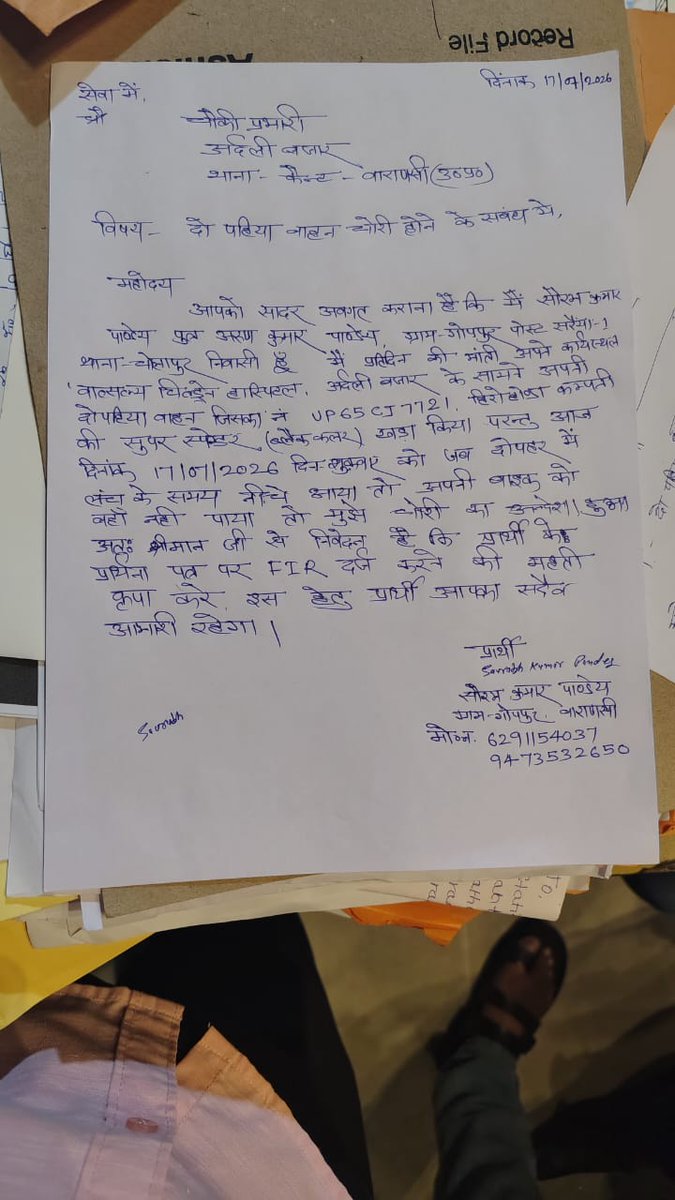 Record File
दिनांक 17/07/2026
सेवा में,
श्री
चौकी प्रभारी
अर्दली बजार
थाना - कैन्ट - वाराणसी (उ०प्र०)
विषय - दो पहिया वाहन चोरी होने के संबंध में,
महोदय
आपको सादर अवगत कराना है कि मैं सौरभ कुमार
पाण्डेय पुत्र अरुण कुमार पाण्डेय, ग्राम-गोपपुर पोस्ट सरैया-1
थाना-चोलापुर निवासी हूँ मैं प्रतिदिन की भाँती अपने कार्यस्थल
वात्सल्य चिल्ड्रेन हास्पिटल, अर्दली बजार के सामने अपनी
दोपहिया वाहन जिसका नं UP65CJ7721, हिरोहोण्डा कम्पनी
की सुपर स्पेलेंडर (ब्लैक कलर) खड़ा किया परन्तु आज
दिनांक 17/07/2026 दिन-शुक्रवार को जब दोपहर में
लंच के समय नीचे आया तो अपनी बाइक को
वहाँ नही पाया तो मुझे चोरी का अन्देशा हुआ
अतः श्रीमान जी से निवेदन है कि प्रार्थी के
प्रार्थना पत्र पर FIR दर्ज करने की महती
कृपा करे, इस हेतु प्रार्थी आपका सदैव
आभारी रहेगा।
प्रार्थी
Saurabh Kumar Pandey
सौरभ कुमार पाण्डेय
ग्राम-गोपपुर, वाराणसी
मो०न. 6291154037
9473532650
Saurabh